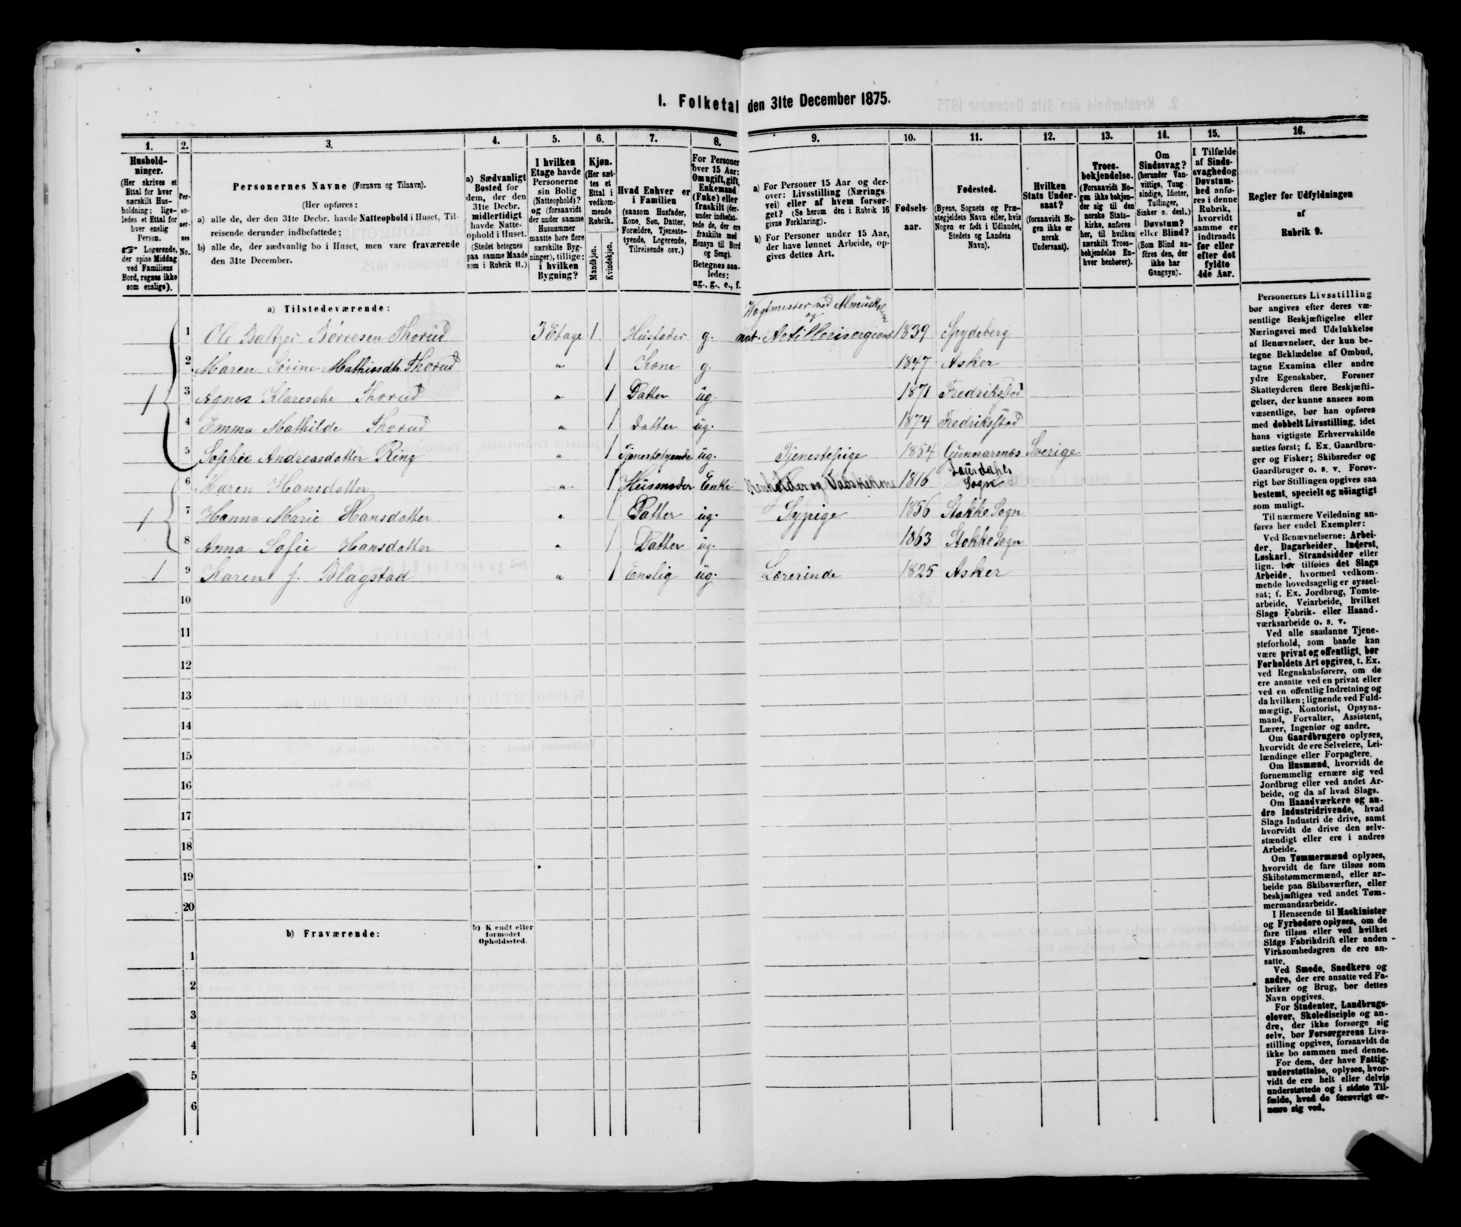 I. Folketal den 31te December 1875.
1. 2. 3. 4. 5. 6. 7. 8. 9. 10. 11. 12. 13. 14. 15. 16.
Husholdninger.
(Her skrives et
Ettal for hver
særskilt Husholdning;
ligeledes et Ettal for
hver enslig
Person.
Logerende,
der spise Middag
ved Familiens
Bord, regnes ikke
som enslige).
Personernes No.
Personernes Navne (Fornavn og Tilnavn).
(Her opføres:
a) alle de, der den 31te Decbr. havde Natteophold i Huset, Tilreisende derunder indbefattede;
b) alle de, der sædvanlig bo i Huset, men vare fraværende
den 31te December.
a) Sædvanligt
Bosted for
dem, der den
31te Decbr.
midlertidigt
havde Natteophold i Huset.
(Stedet betegnes
paa samme Maade
som i Rubrik 11.)
I hvilken
Etage havde
Personerne
sin Bolig
(Natteophold)?
og (forsaavidt
der under samme
Husnummer
maatte høre flere
særskilte Bygninger), tillige:
i hvilken
Bygning?
Kjøn.
(Her sættes et
Ettal i
vedkommende
Rubrik.
Mandkjøn.
Kvindekjøn.
Hvad Enhver er
i Familien
(saasom Husfader,
Kone, Søn, Datter,
Forældre, Tjenestetyende, Logerende,
Tilreisende osv.)
For Personer
over 15 Aar:
Om ugift, gift,
Enkemand
(Enke) eller
fraskilt
Betegnes saaledes:
ug., g., e., f.
a) For Personer 15 Aar og derover: Livsstilling (Næringsvei) eller af hvem forsørget? (Se herom den i Rubrik 16
givne Forklaring).
b) For Personer under 15 Aar,
der have lønnet Arbeide, opgives dettes Art.
Fødselsaar.
Fødested.
(Byens, Sognets og Præstegjeldets Navn eller, hvis
Nogen er født i Udlandet,
Stedets og Landets
Navn).
Hvilken
Stats Undersaat?
(forsaavidt Nogen ikke er
norsk
Undersaat).
Troesbekjendelse.
(Forsaavidt Nogen ikke bekjender sig til den
norske Statskirke, anføres
her, til hvilken
særskilt Troesbekjendelse Enhver henhører).
Om
Sindssvag?
(herunder Vanvittige, Tungsindige, Idioter,
Tullinger,
Sinker o. desl.)
Døvstum?
eller Blind?
(Som Blind anføres den, der
ikke har
Gangsyn).
I Tilfælde
af Sindssvaghed og
Døvstumhed anføres i denne
Rubrik,
hvorvidt
samme er
indtraadt
før eller
efter det
fyldte
4de Aar.
Regler for Udfyldningen
af
Rubrik 9.
a) Tilstedeværende:
Vagtmester ved
og
1 Ole Baltzer Børresen Thorud 3 Etage 1 Husfader g. Artillerisergeant 1839 Spydeberg
2 Maren Sørine Mathiasdtr Thorud " 1 Kone g. 1847 Asker
1 3 Agnes Klaresche Thorud " 1 Datter ug. 1871 Fredrikstad
4 Emma Mathilde Thorud " 1 Datter ug. 1874 Fredrikstad
5 Sophie Andreasdatter Ring " 1 Tjenestetyende ug. Tjenestepige 1854 Gunnarsnæs Sverige
6 Maren Hansdatter " 1 Husmoder Enke 1816 Laurdahl Sogn
1 7 Hanna Marie Hansdatter " 1 Datter ug. Sypige 1856 Stokke Sogn
8 Anna Sofie Hansdatter " 1 Datter ug. 1863 Stokke Sogn
1 9 Karen J. Blagstad " 1 Enslig ug. Lærerinde 1825 Asker
10
11
12
13
14
15
16
17
18
19
20
b) Fraværende:
b) Kjendt eller
formodet
Opholdssted.
1
2
3
4
5
6
Personernes Livsstilling
bør angives efter deres væsentlige Beskjæftigelse eller
Næringsvei med Udelukkelse
af Benævnelser, der kun betegne Beklædelse af Ombud,
tagne Examina eller andre
ydre Egenskaber. Forener
Skatteyderen flere Beskjæftigelser, der kunne ansees som
væsentlige, bør han opføres
med dobbelt Livsstilling, idet
hans vigtigste Erhvervskilde
sættes først; f. Ex. Gaardbruger og Fisker; Skibsreder og
Gaardbruger o. s. v. Forøvrigt bør Stillingen opgives saa
bestemt, specielt og nøiagtigt
som muligt.
Til nærmere Veiledning anføres her endel Exempler:
Ved Benævnelserne: Arbeider, Dagarbeider, Inderst,
Løskarl, Strandsidder eller
lign. bør tilføies det Slags
Arbeide, hvormed vedkommende hovedsagelig er sysselsat; f. Ex. Jordbrug, Tomtearbeide, Veiarbeide, hvilket
Slags Fabrik- eller Haandværksarbeide o. s. v.
Ved alle saadanne Tjenesteforhold, som baade kan
være privat og offentligt, bør
Forholdets Art opgives, t. Ex.
ved Regnskabsførere, om de
ere ansatte ved en privat eller
ved en offentlig Indretning og
da hvilken; lignende ved Fuldmægtig, Kontorist, Opsynsmand, Forvalter, Assistent,
Lærer, Ingeniør og andre.
Om Gaardbrugere oplyses,
hvorvidt de ere Selveiere, Leilændinge eller Forpagtere.
Om Husmænd, hvorvidt de
fornemmelig ernære sig ved
Jordbrug eller ved andet Arbeide, og da af hvad Slags.
Om Haandværkere og andre Industridrivende, hvad
Slags Industri de drive, samt
hvorvidt de drive den selvstændigt eller ere i andres
Arbeide.
Om Tømmermænd oplyses,
hvorvidt de fare tilsøs som
Skibstømmermænd, eller arbeide paa Skibsværfter, eller
beskjæftiges ved andet Tømmermandsarbeide.
I Henseende til Maskinister
og Fyrbødere oplyses, om de
fare tilsøs eller ved hvilket
Slags Fabrikdrift eller anden
Virksomhedsgren de ere ansatte.
Ved Smede, Snedkere og
andre, der ere ansatte ved Fabriker og Brug, bør dettes
Navn opgives.
For Studenter, Landbrugselever, Skoledisciple og andre, der ikke forsørge sig
selv, bør Forsørgerens Livsstilling opgives, forsaavidt de
ikke bo sammen med denne.
For dem, der have Fattigunderstøttelse, oplyses, hvorvidt de ere helt eller delvis
understøttede og i sidste Tilfælde, hvad de forøvrigt ernære sig ved.